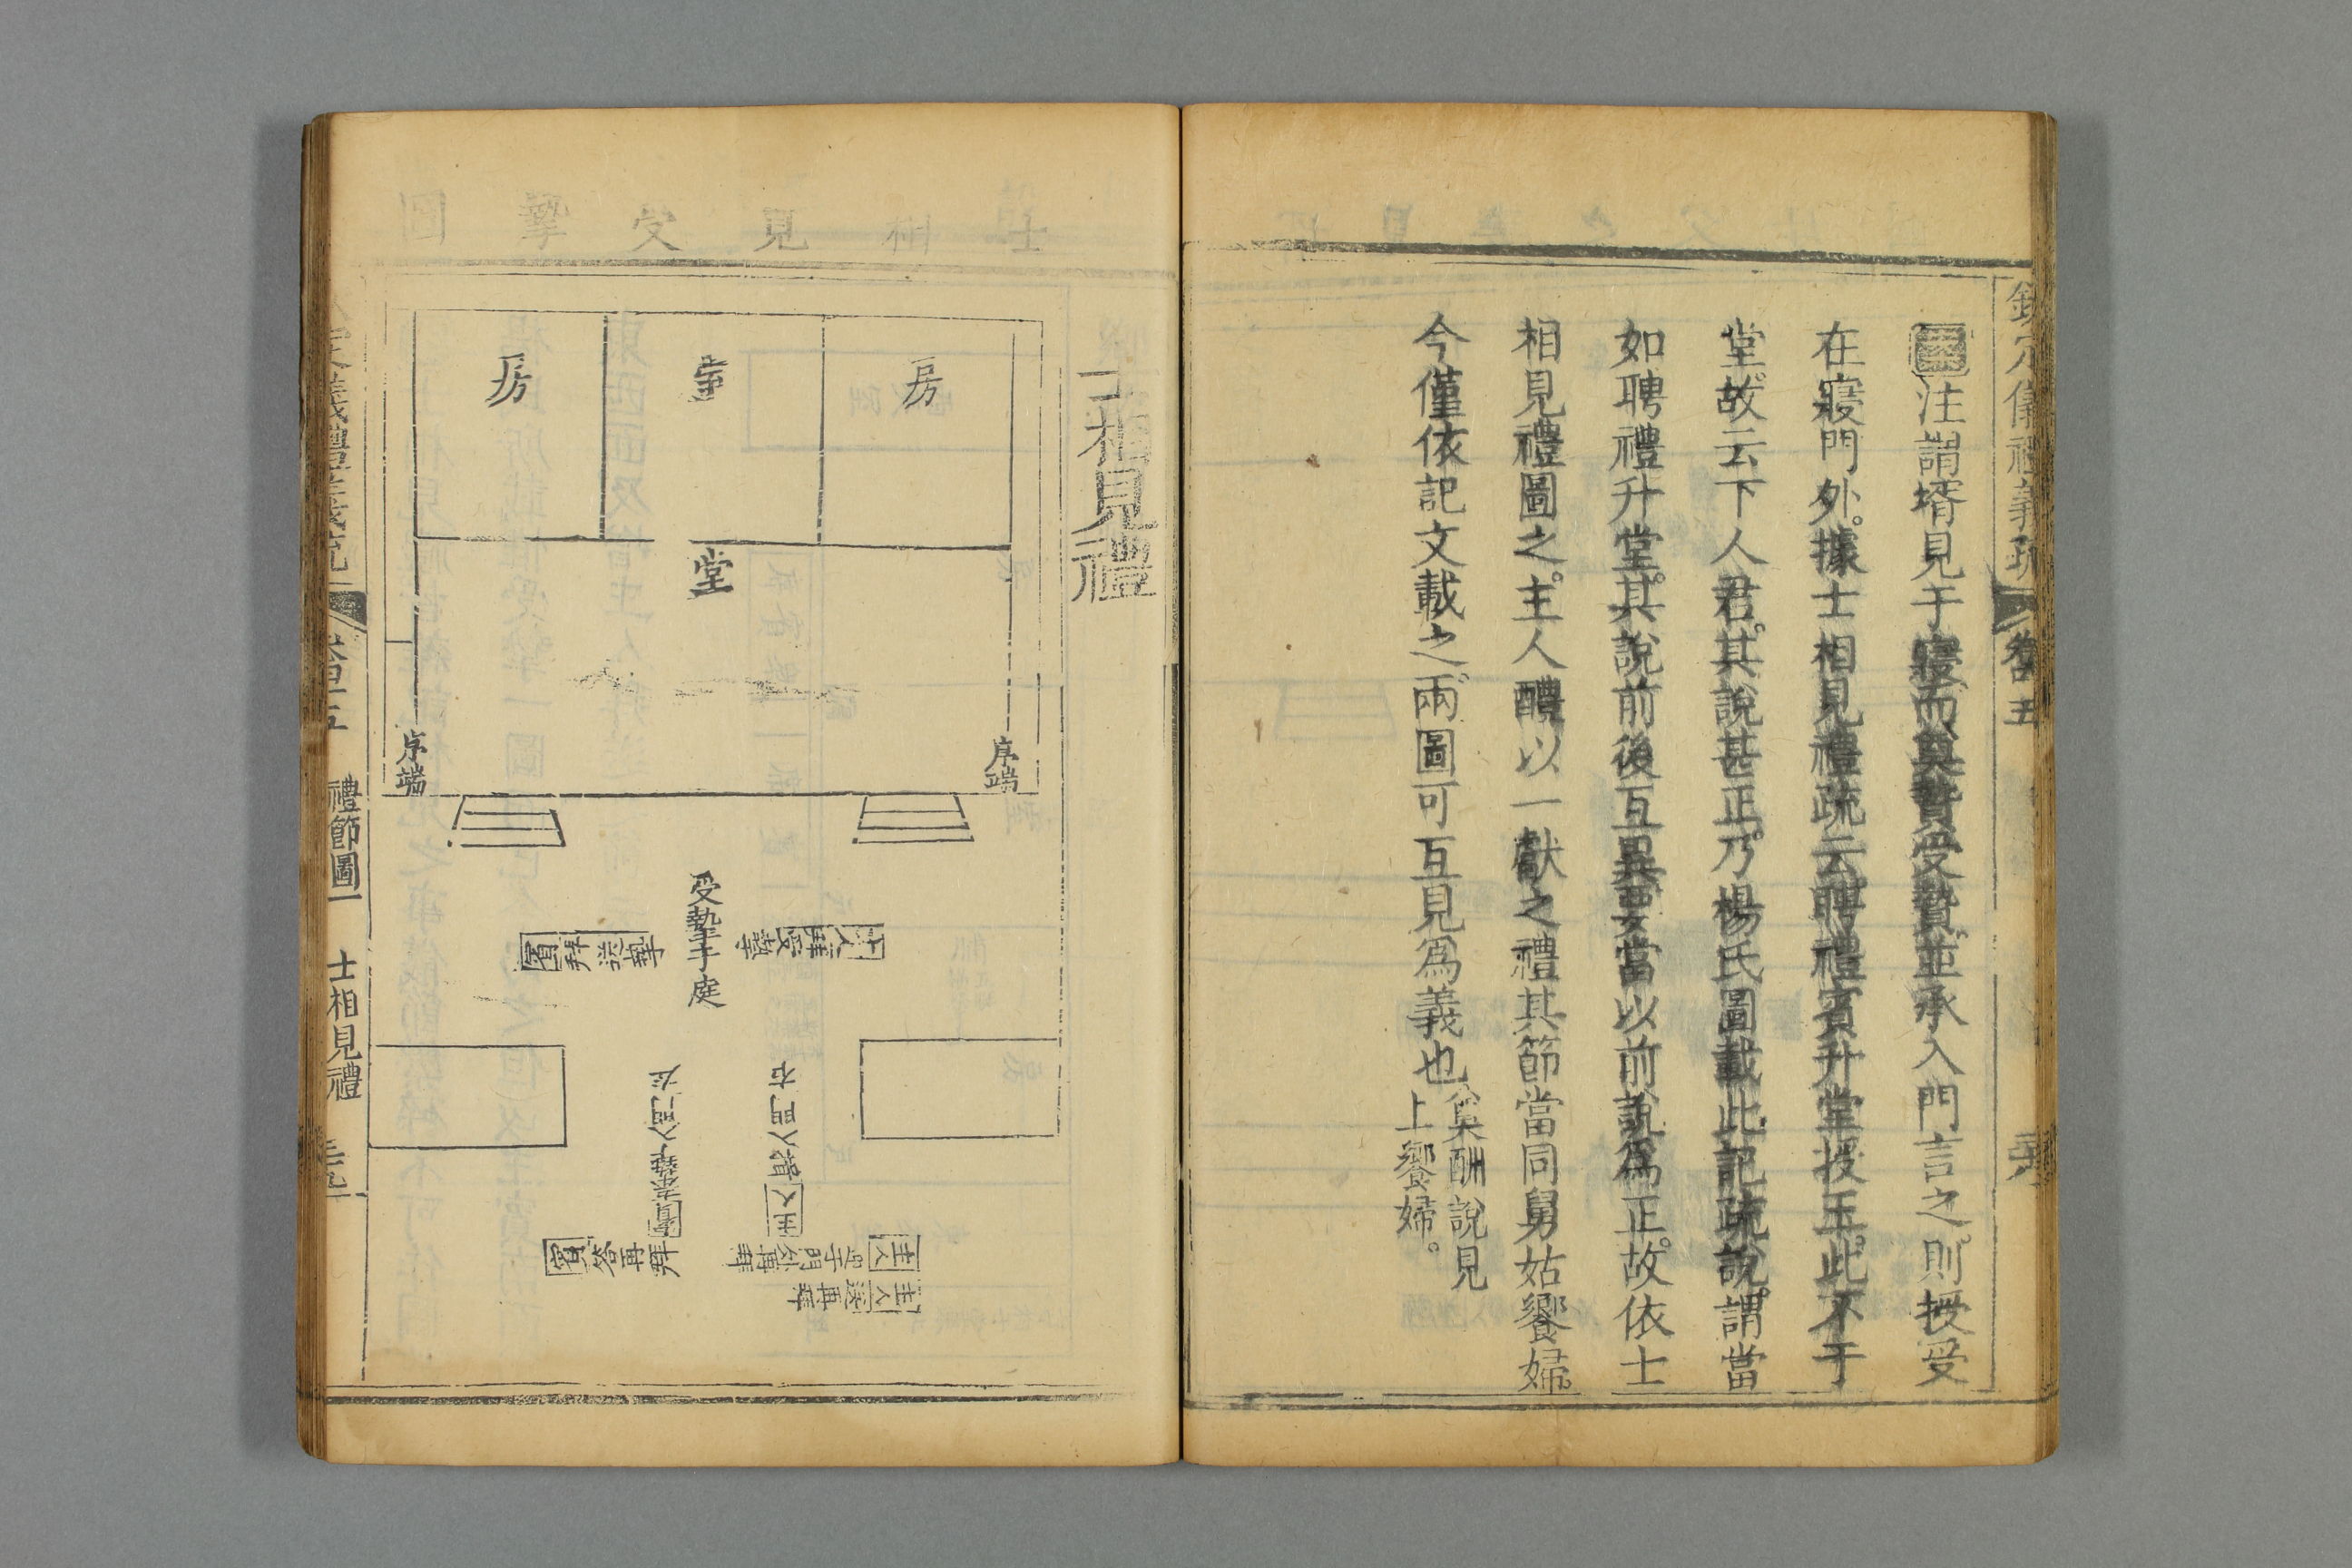 注謂壻見于寢而奠贄受贄並承入門言之則授受
在寢門外據士相見禮疏云聘禮賓升堂授玉此不于
堂故云下人君其說甚正乃楊氏圖載此記疏說謂當
如聘禮升堂其說前後互異要當以前說為正故依士
相見禮圖之主人醴以一獻之禮其節當同舅姑饗婦
今僅依記文載之兩圖可互見為義也
奠酬說見
上饗婦。
士相見禮
士相見受摯圖
房
室
房
堂
序端
序端
受摯于庭
主人拜受摯
賓拜送摯
主人揖入門右
賓奉摯入門左
主人出于門外再拜
賓答再拜
主人送再拜
禮節圖一
士相見禮